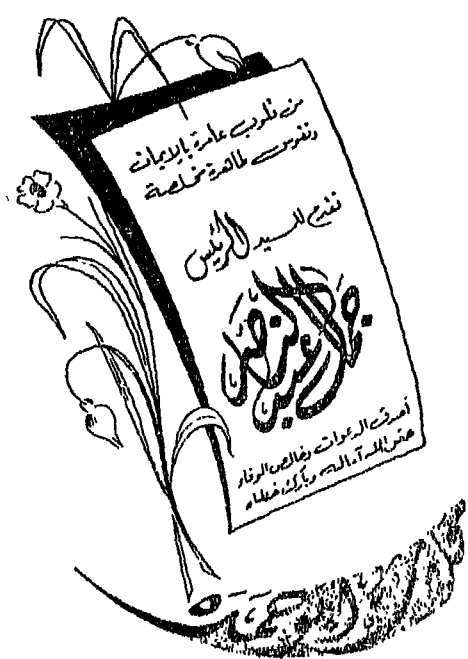 من قلوب عامرة بالإيمان
ونفوس طاهرة مخلصة
نقدم للسيد الرئيس
جمال عبد الناصر
أصدق الدعوات وخالص الوفاء
حقق الله آماله وبارك خطاه